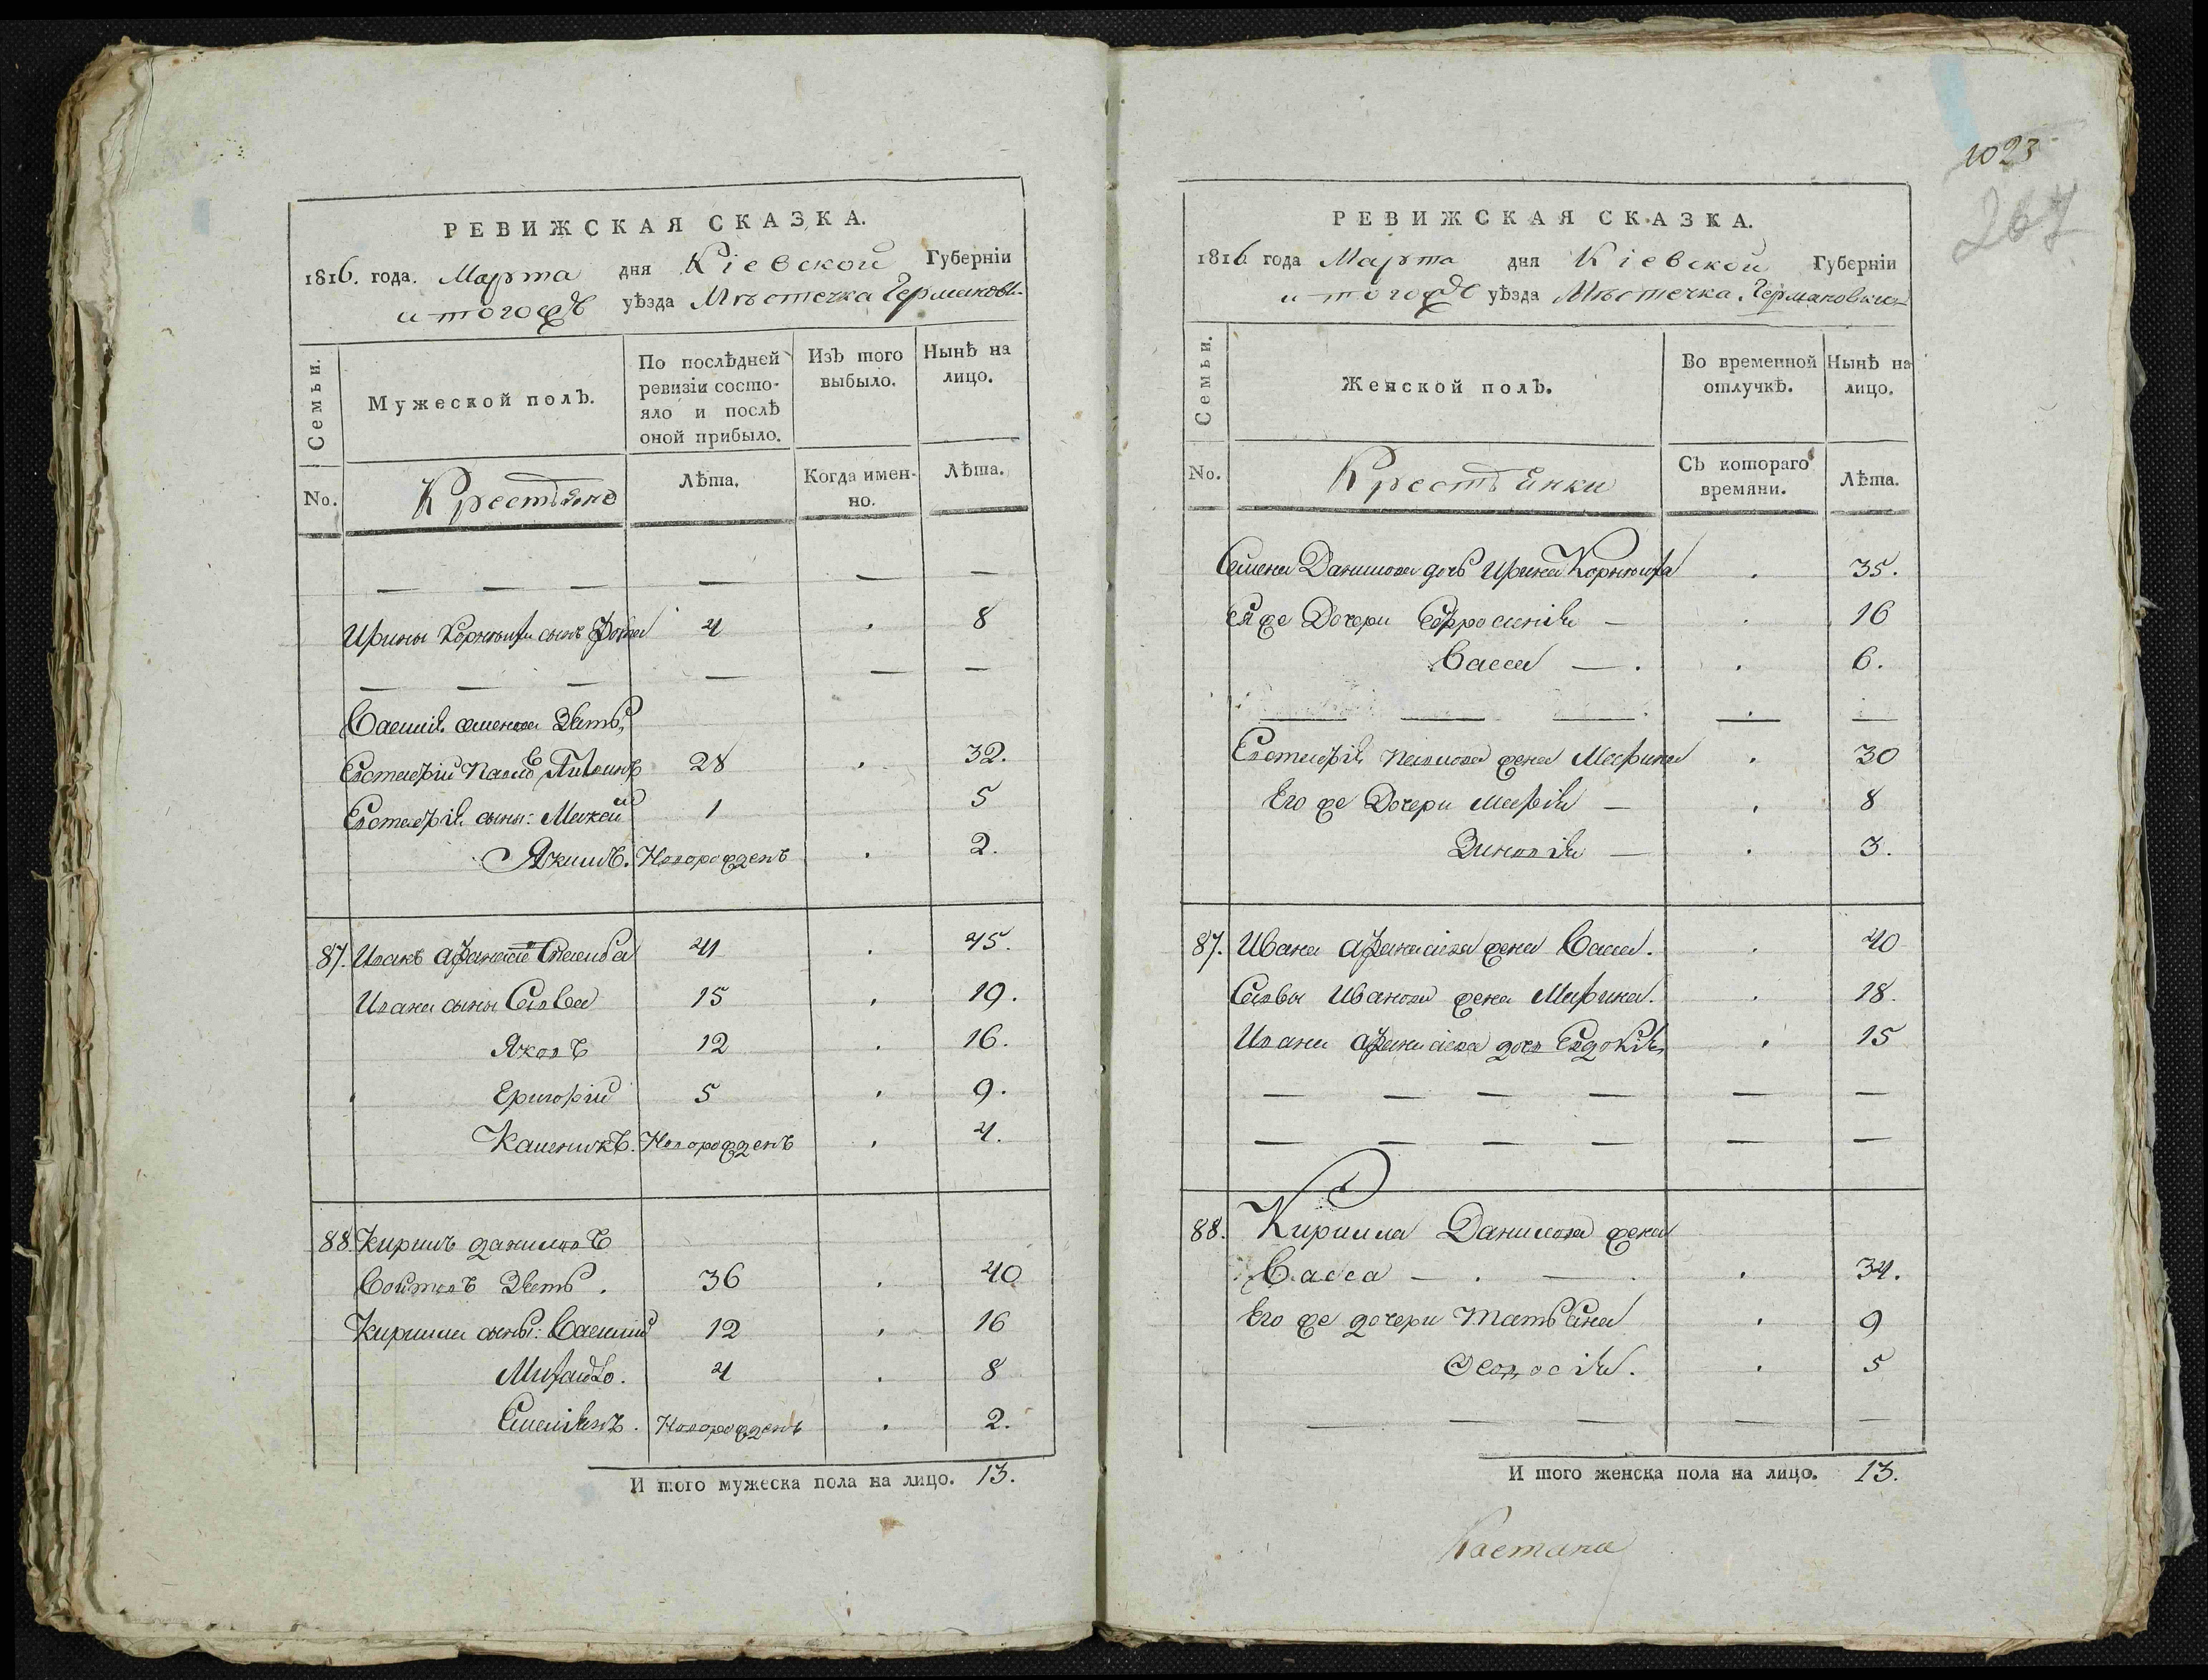 РЕВИЖСКАЯ СКАЗКА.
1816. года. Марта дня Кіевской Губерніи
и тогожъ уѣзда Мѣстечка Германовки
Семьи.
Мужеской полъ.
По послѣдней ревизіи состояло и послѣ оной прибыло.
Изъ того выбыло.
Нынѣ на лицо.
No.
Крестьяне
Лѣта.
Когда именно.
Лѣта.
— — — — — —
Ирины сынъ 4 . 8
— — — — — —
Василія семенова Зять,
Евстафій Павловъ 28 . 32.
Евстафія сыны: Мокей 1 5
Якимъ. Новорожденъ . 2.
87. Иванъ Афанасіевъ 41 . 45.
Ивана сыны Савва 15 . 19.
Яковъ 12 . 16.
Григорій 5 . 9.
Каленикъ. Новорожденъ . 4.
88. Кирилъ даниловъ
Зять . 36 . 40
Кирилла сыны: Василий 12 . 16
Михайло. 4 . 8
Емеліянъ. Новорожденъ . 2.
И того мужеска пола на лицо. 13.
1023
267
РЕВИЖСКАЯ СКАЗКА.
1816 года Марта дня Кіевской Губерніи
и тогожъ уѣзда Мѣстечка Германовки
Семьи.
Женской полъ.
Во временной отлучкѣ.
Нынѣ на лицо.
No.
Крестьянки
Съ котораго времяни.
Лѣта.
Семена Данилова дочь Ирина . 35.
Ея же Дочери Ефросинія — . 16
Васса — . . 6.
— — — — —
Евстафія Павлова жена Марина . 30
Его же Дочери марія — . 8
Зиновія — . 3.
87. Ивана Афанасіева жена Васса. . 40
Саввы Иванова жена Марина. . 18.
Ивана Афанасіева дочь Евдокія . 15
— — — — — —
— — — — — —
88. Кирилла Данилова жена
Васса — . — . 34.
Его же дочери Татьяна . 9
Феодосія. . 5
— — — — —
И того женска пола на лицо. 13.